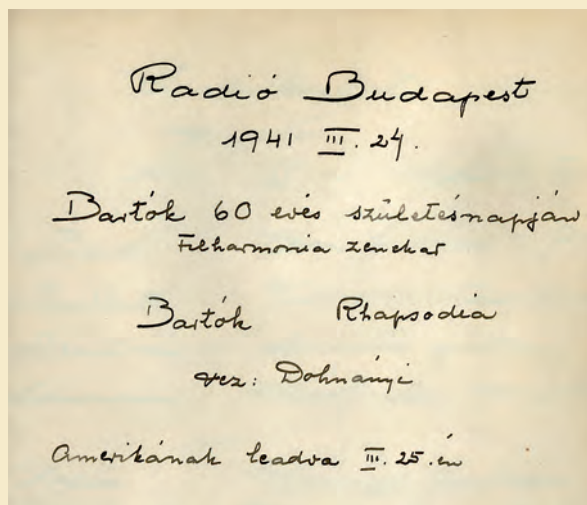 Radió Budapest
1941 III. 24.
Bartók 60 eves születésnapján
Filharmonia zenekar
Bartók Rhapsodia
vez: Dohnányi
Amerikának leadva III. 25.én